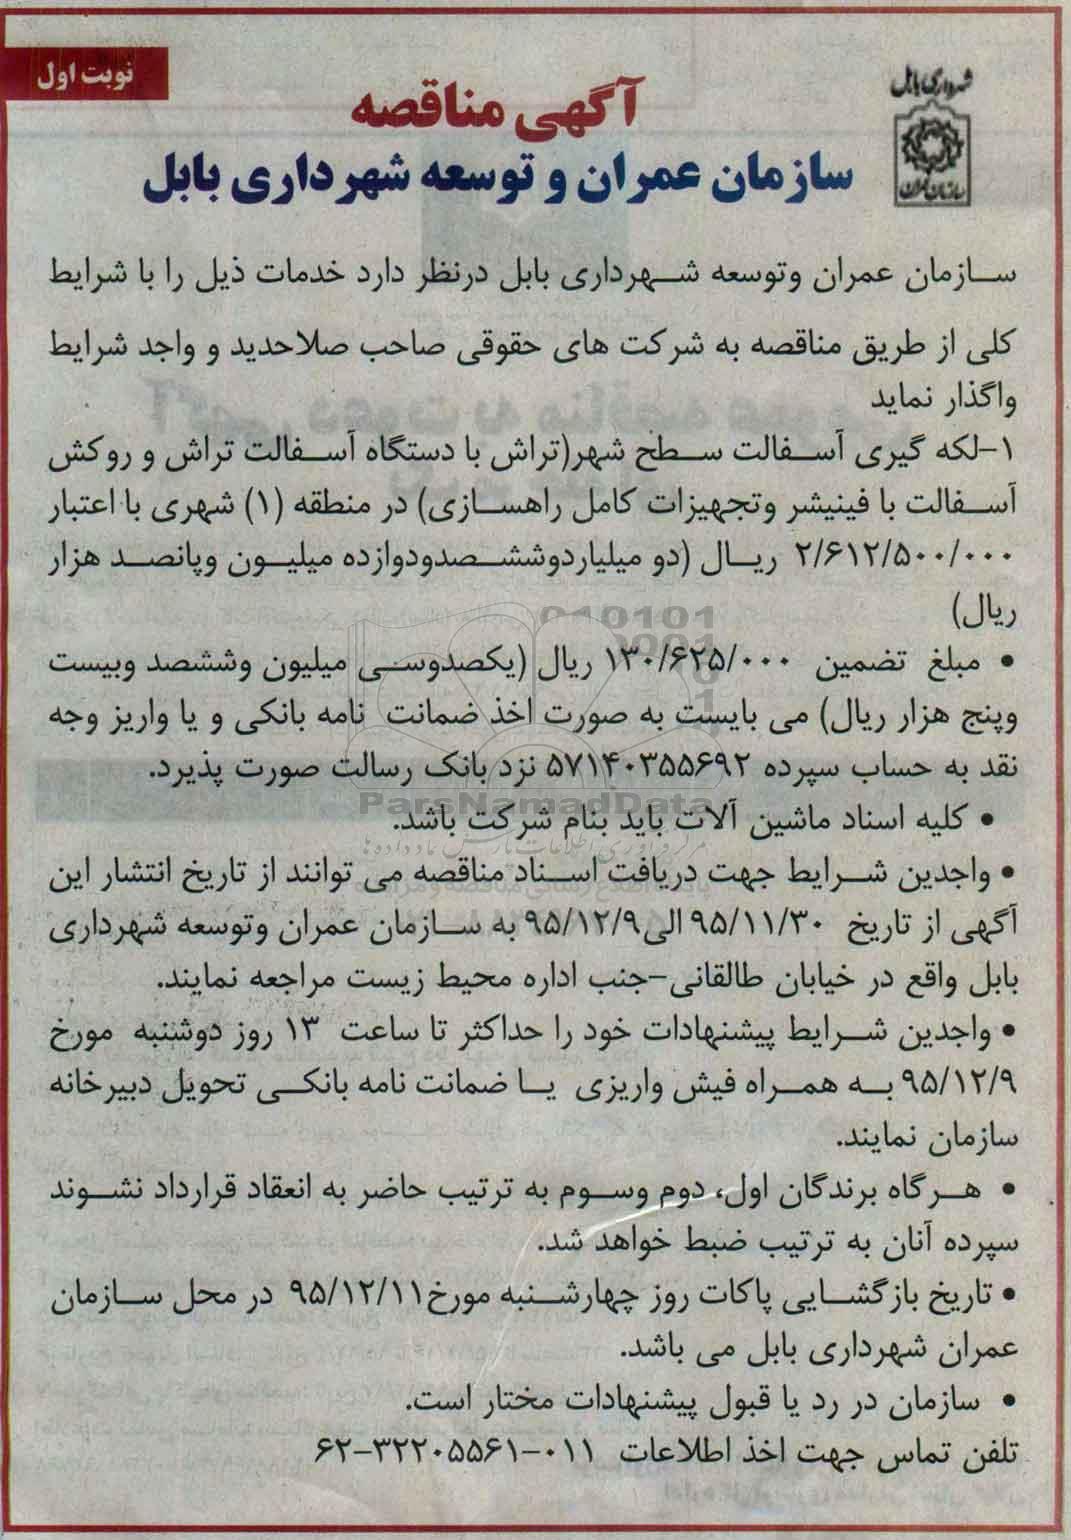 نوبت اول
شهرداری بابل
سازمان عمران
آگهی مناقصه
سازمان عمران و توسعه شهرداری بابل
سازمان عمران وتوسعه شهرداری بابل درنظر دارد خدمات ذیل را با شرایط
کلی از طریق مناقصه به شرکت های حقوقی صاحب صلاحدید و واجد شرایط
واگذار نماید
۱-لکه گیری آسفالت سطح شهر(تراش با دستگاه آسفالت تراش و روکش
آسفالت با فینیشر وتجهیزات کامل راهسازی) در منطقه (۱) شهری با اعتبار
۲/۶۱۲/۵۰۰/۰۰۰ ریال (دو میلیاردوششصدودوازده میلیون وپانصد هزار
ریال)
• مبلغ تضمین ۱۳۰/۶۲۵/۰۰۰ ریال (یکصدوسی میلیون وششصد وبیست
وپنج هزار ریال) می بایست به صورت اخذ ضمانت نامه بانکی و یا واریز وجه
نقد به حساب سپرده ۵۷۱۴۰۳۵۵۶۹۲ نزد بانک رسالت صورت پذیرد.
ParsNamadData
• کلیه اسناد ماشین آلات باید بنام شرکت باشد.
• واجدین شرایط جهت دریافت اسناد مناقصه می توانند از تاریخ انتشار این
آگهی از تاریخ ۹۵/۱۱/۳۰ الی۹۵/۱۲/۹ به سازمان عمران وتوسعه شهرداری
بابل واقع در خیابان طالقانی-جنب اداره محیط زیست مراجعه نمایند.
• واجدین شرایط پیشنهادات خود را حداکثر تا ساعت ۱۳ روز دوشنبه مورخ
۹۵/۱۲/۹ به همراه فیش واریزی یا ضمانت نامه بانکی تحویل دبیرخانه
سازمان نمایند.
• هرگاه برندگان اول، دوم وسوم به ترتیب حاضر به انعقاد قرارداد نشوند
سپرده آنان به ترتیب ضبط خواهد شد.
• تاریخ بازگشایی پاکات روز چهارشنبه مورخ۹۵/۱۲/۱۱ در محل سازمان
عمران شهرداری بابل می باشد.
• سازمان در رد یا قبول پیشنهادات مختار است.
تلفن تماس جهت اخذ اطلاعات ۰۱۱-۳۲۲۰۵۵۶۱-۶۲